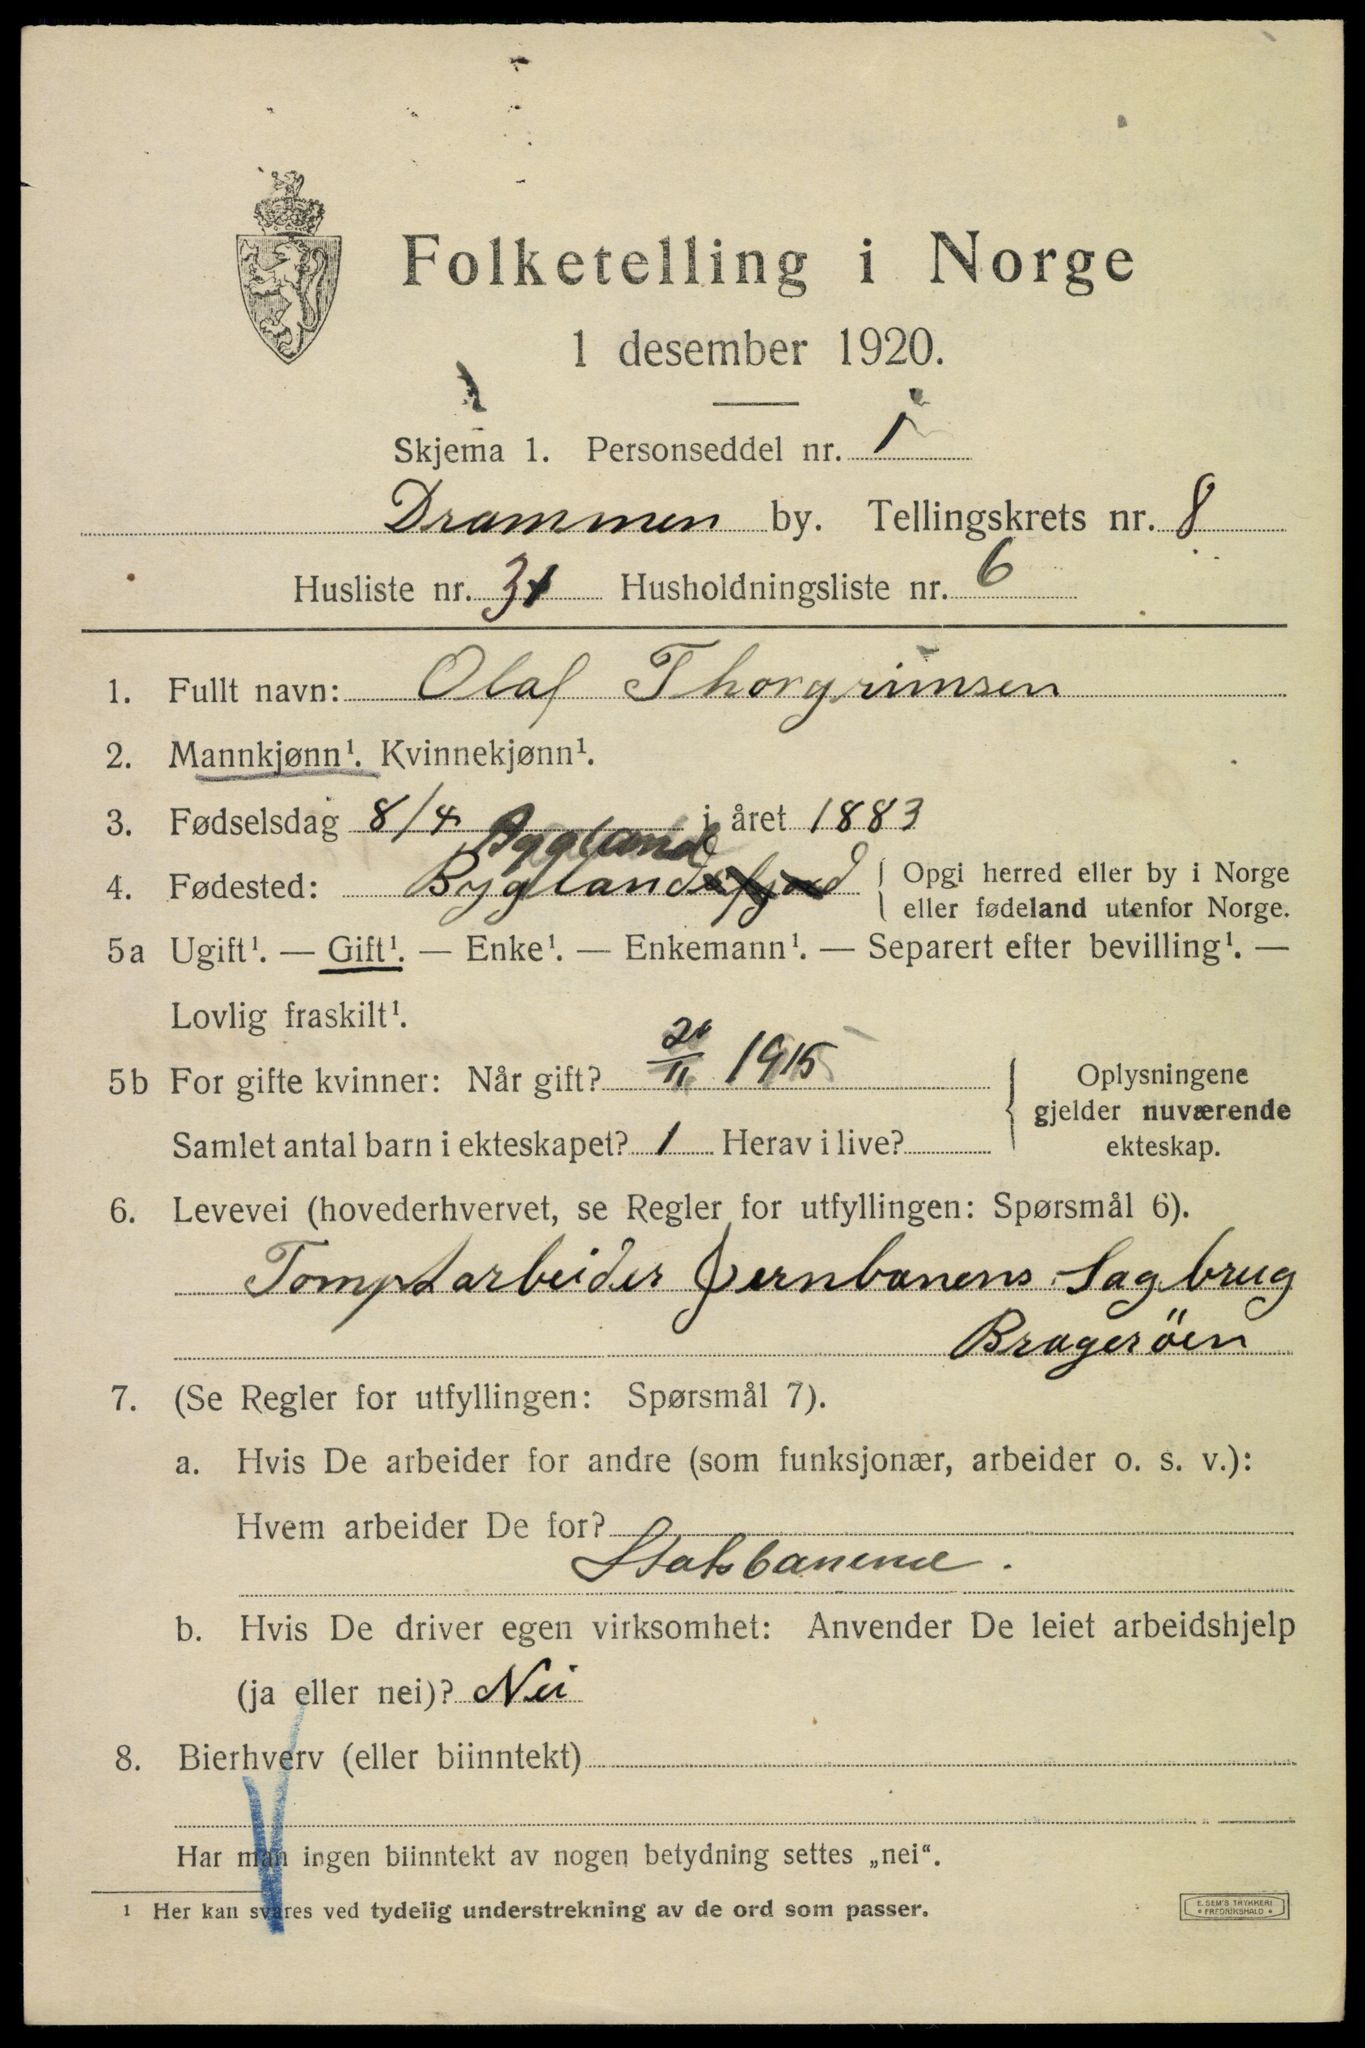 Folketelling i Norge
1 desember 1920.
Skjema 1. Personseddel nr. 1
Drammen by. Tellingskrets nr. 8
Husliste nr. 31 Husholdningsliste nr. 6
1. Fullt navn: Olaf Thorgrimsen
2. Mannkjønn¹. Kvinnekjønn¹.
3. Fødselsdag 8/4 i året 1883
Bygland
4. Fødested: Byglandsfjord { Opgi herred eller by i Norge
eller fødeland utenfor Norge.
5a Ugift¹. — Gift¹. — Enke¹. — Enkemann¹. — Separert efter bevilling¹. —
Lovlig fraskilt¹.
5b For gifte kvinner: Når gift? 1915
Samlet antal barn i ekteskapet? 1 Herav i live?
Oplysningene
gjelder nuværende
ekteskap.
6. Levevei (hovederhvervet, se Regler for utfyllingen: Spørsmål 6).
Tomptarbeider Jernbanens Sagbrug
Brageröen
7. (Se Regler for utfyllingen: Spørsmål 7).
a. Hvis De arbeider for andre (som funksjonær, arbeider o. s. v.):
Hvem arbeider De for?
Statsbanerne.
b. Hvis De driver egen virksomhet: Anvender De leiet arbeidshjelp
(ja eller nei)? Nei
8. Bierhverv (eller biinntekt)
Har man ingen biinntekt av nogen betydning settes „nei“.
¹ Her kan svares ved tydelig understrekning av de ord som passer.
E. SEM'S TRYKKERI
FREDRIKSHALD